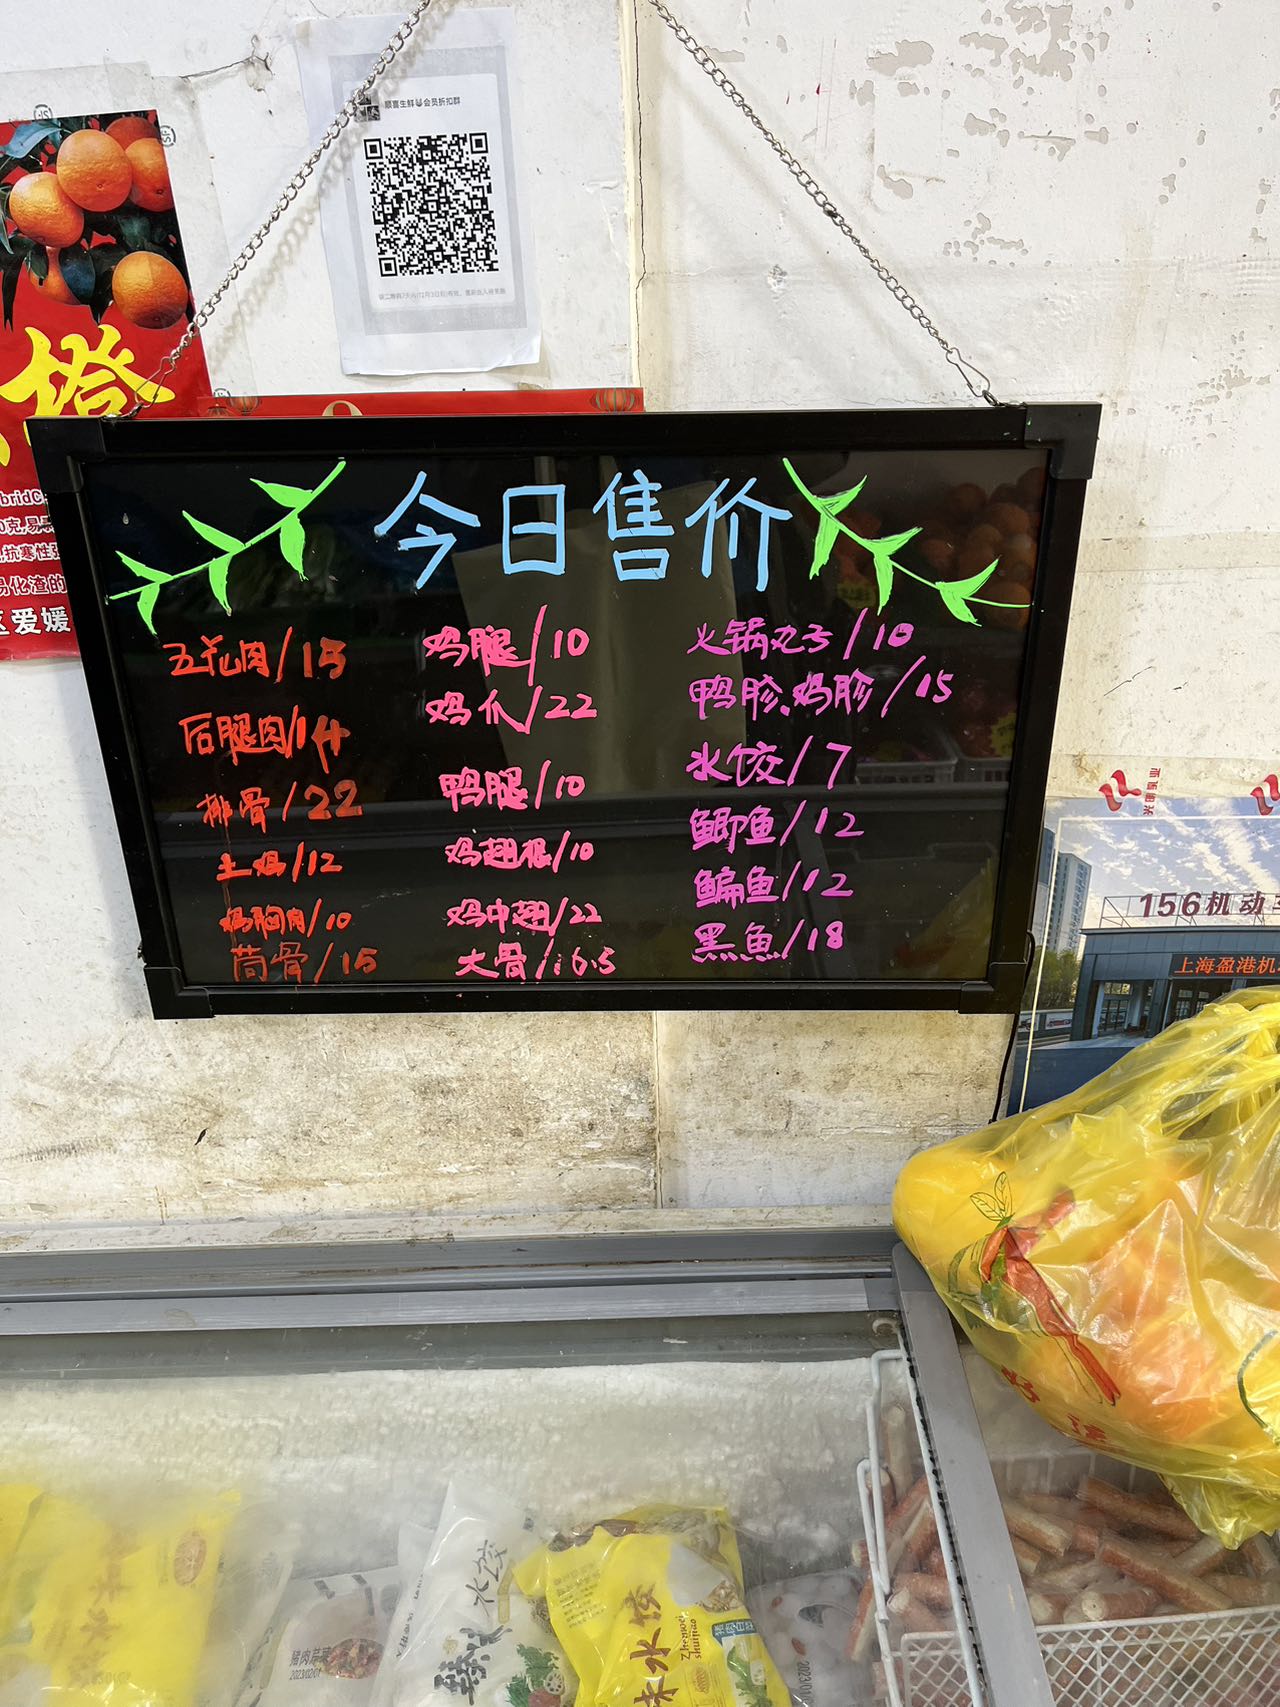 顺喜生鲜
会员折扣群
橙
区爱媛
今日售价
五花肉/15
后腿肉/14
排骨/22
土鸡/12
鸡胸肉/10
筒骨/15
鸡腿/10
鸡爪/22
鸭腿/10
鸡翅根/10
鸡中翅/22
大骨/16.5
火锅丸子/10
鸭胗、鸡胗/15
水饺/7
鲫鱼/12
鳊鱼/12
黑魚/18
156机动
上海盈港机
水饺
水饺
Zhenwei
shuijiao
2023/02/01